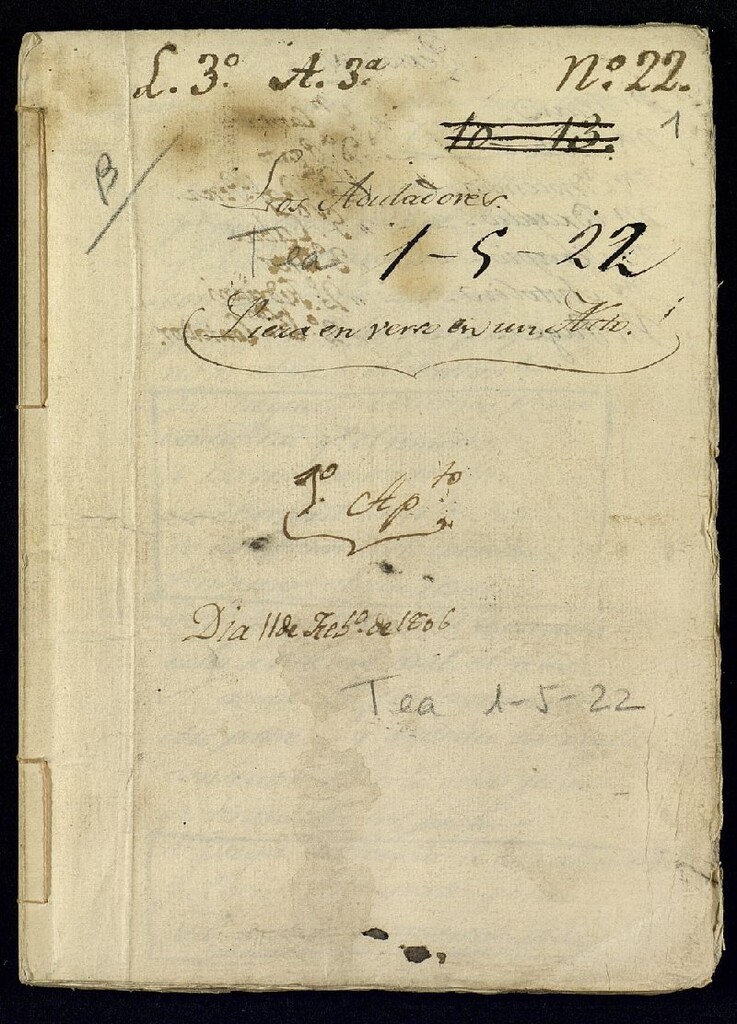 L. 3º A. 3ª Nº 22.
10 13.
1
B
Los Aduladores.
Tea 1-5-22
Pieza en verso en un Acto.
1º Apto
Dia 11 de Febº. de 1806
Tea 1-5-22